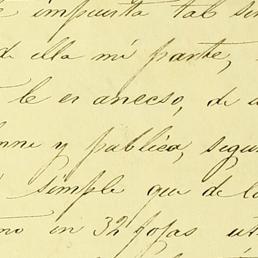 impuesta tal sin
de ella mi parte,
le es anecso, de a
nne y publica, segun
simple que de la
mo in 32 fojas út